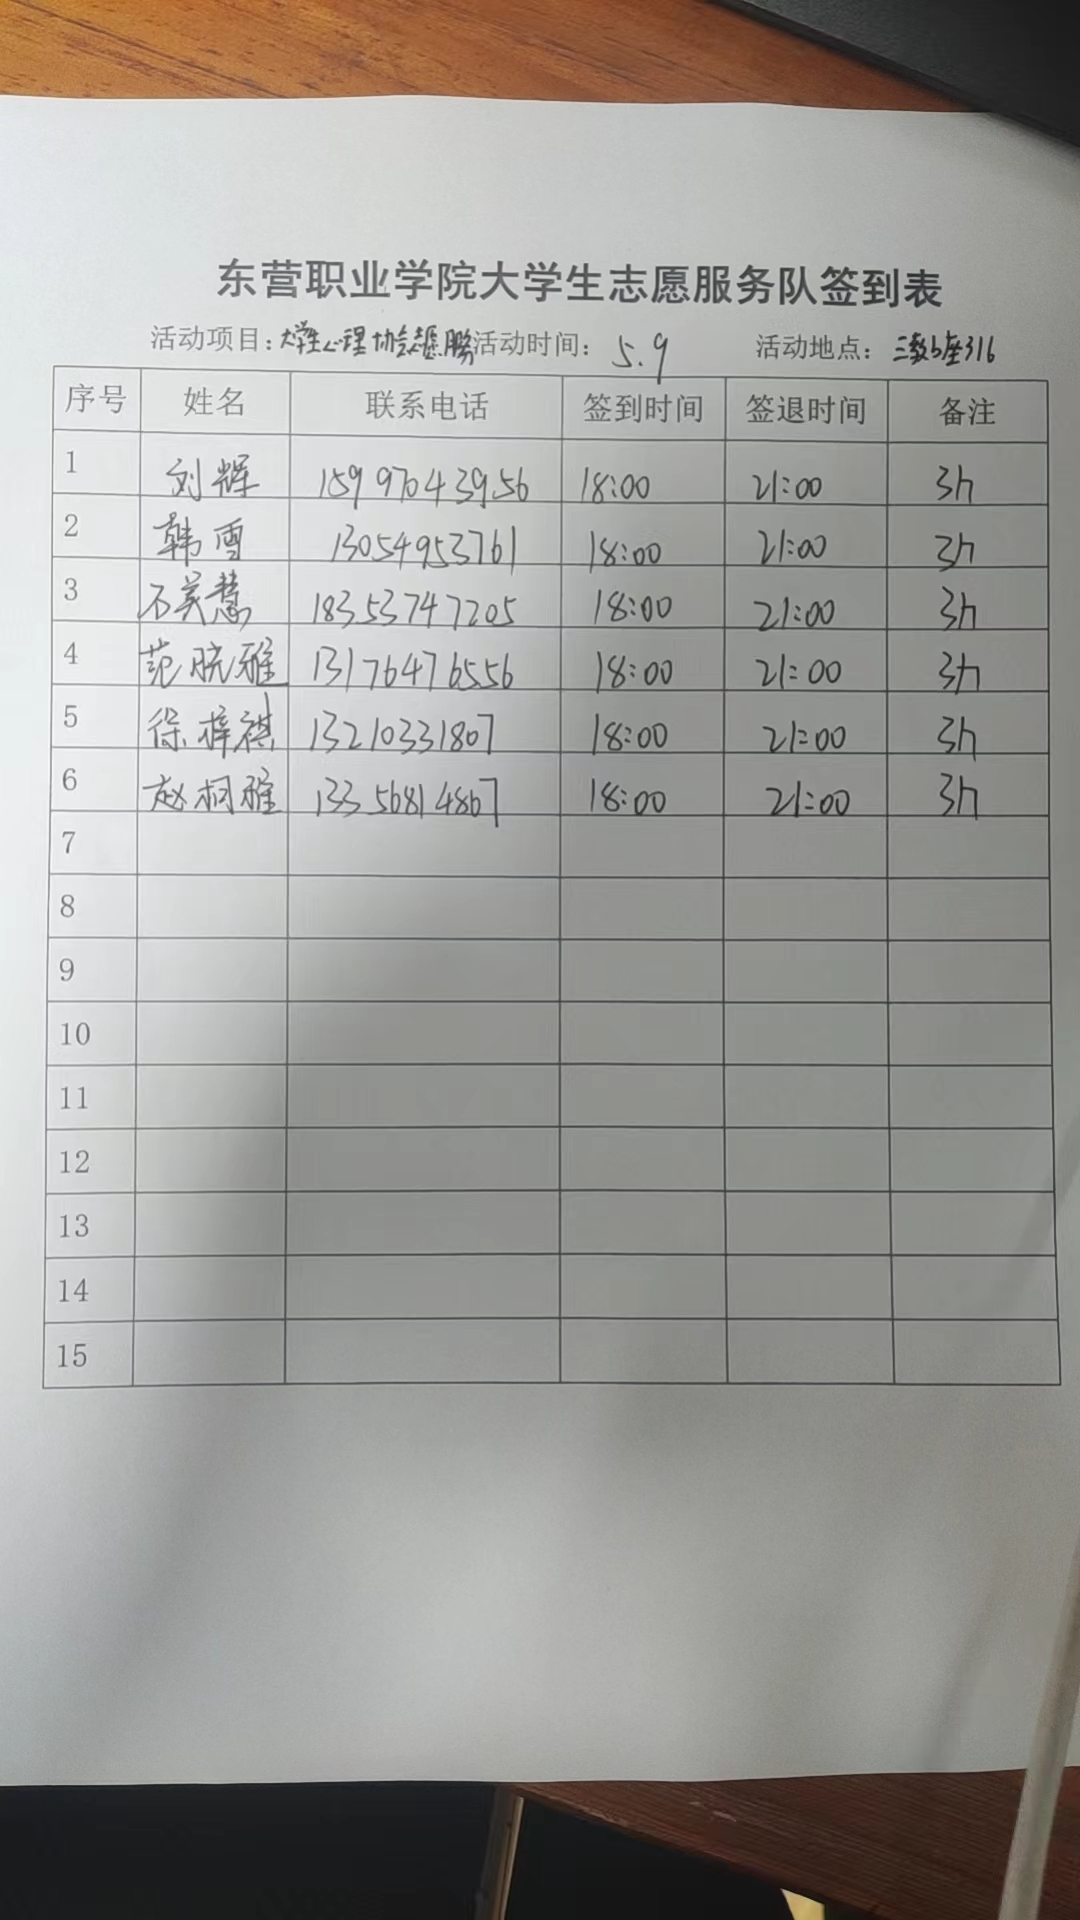 东营职业学院大学生志愿服务队签到表
活动项目：大学生心理协会志愿服务 活动时间： 5.9 活动地点：三教b座316
序号 姓名 联系电话 签到时间 签退时间 备注
1 刘辉 15997043956 18:00 21:00 3h
2 韩雪 13054953761 18:00 21:00 3h
3 石美慧 18353747205 18:00 21:00 3h
4 范晓雅 13176476556 18:00 21:00 3h
5 徐梓祺 13210331807 18:00 21:00 3h
6 赵桐雅 13356814867 18:00 21:00 3h
7
8
9
10
11
12
13
14
15